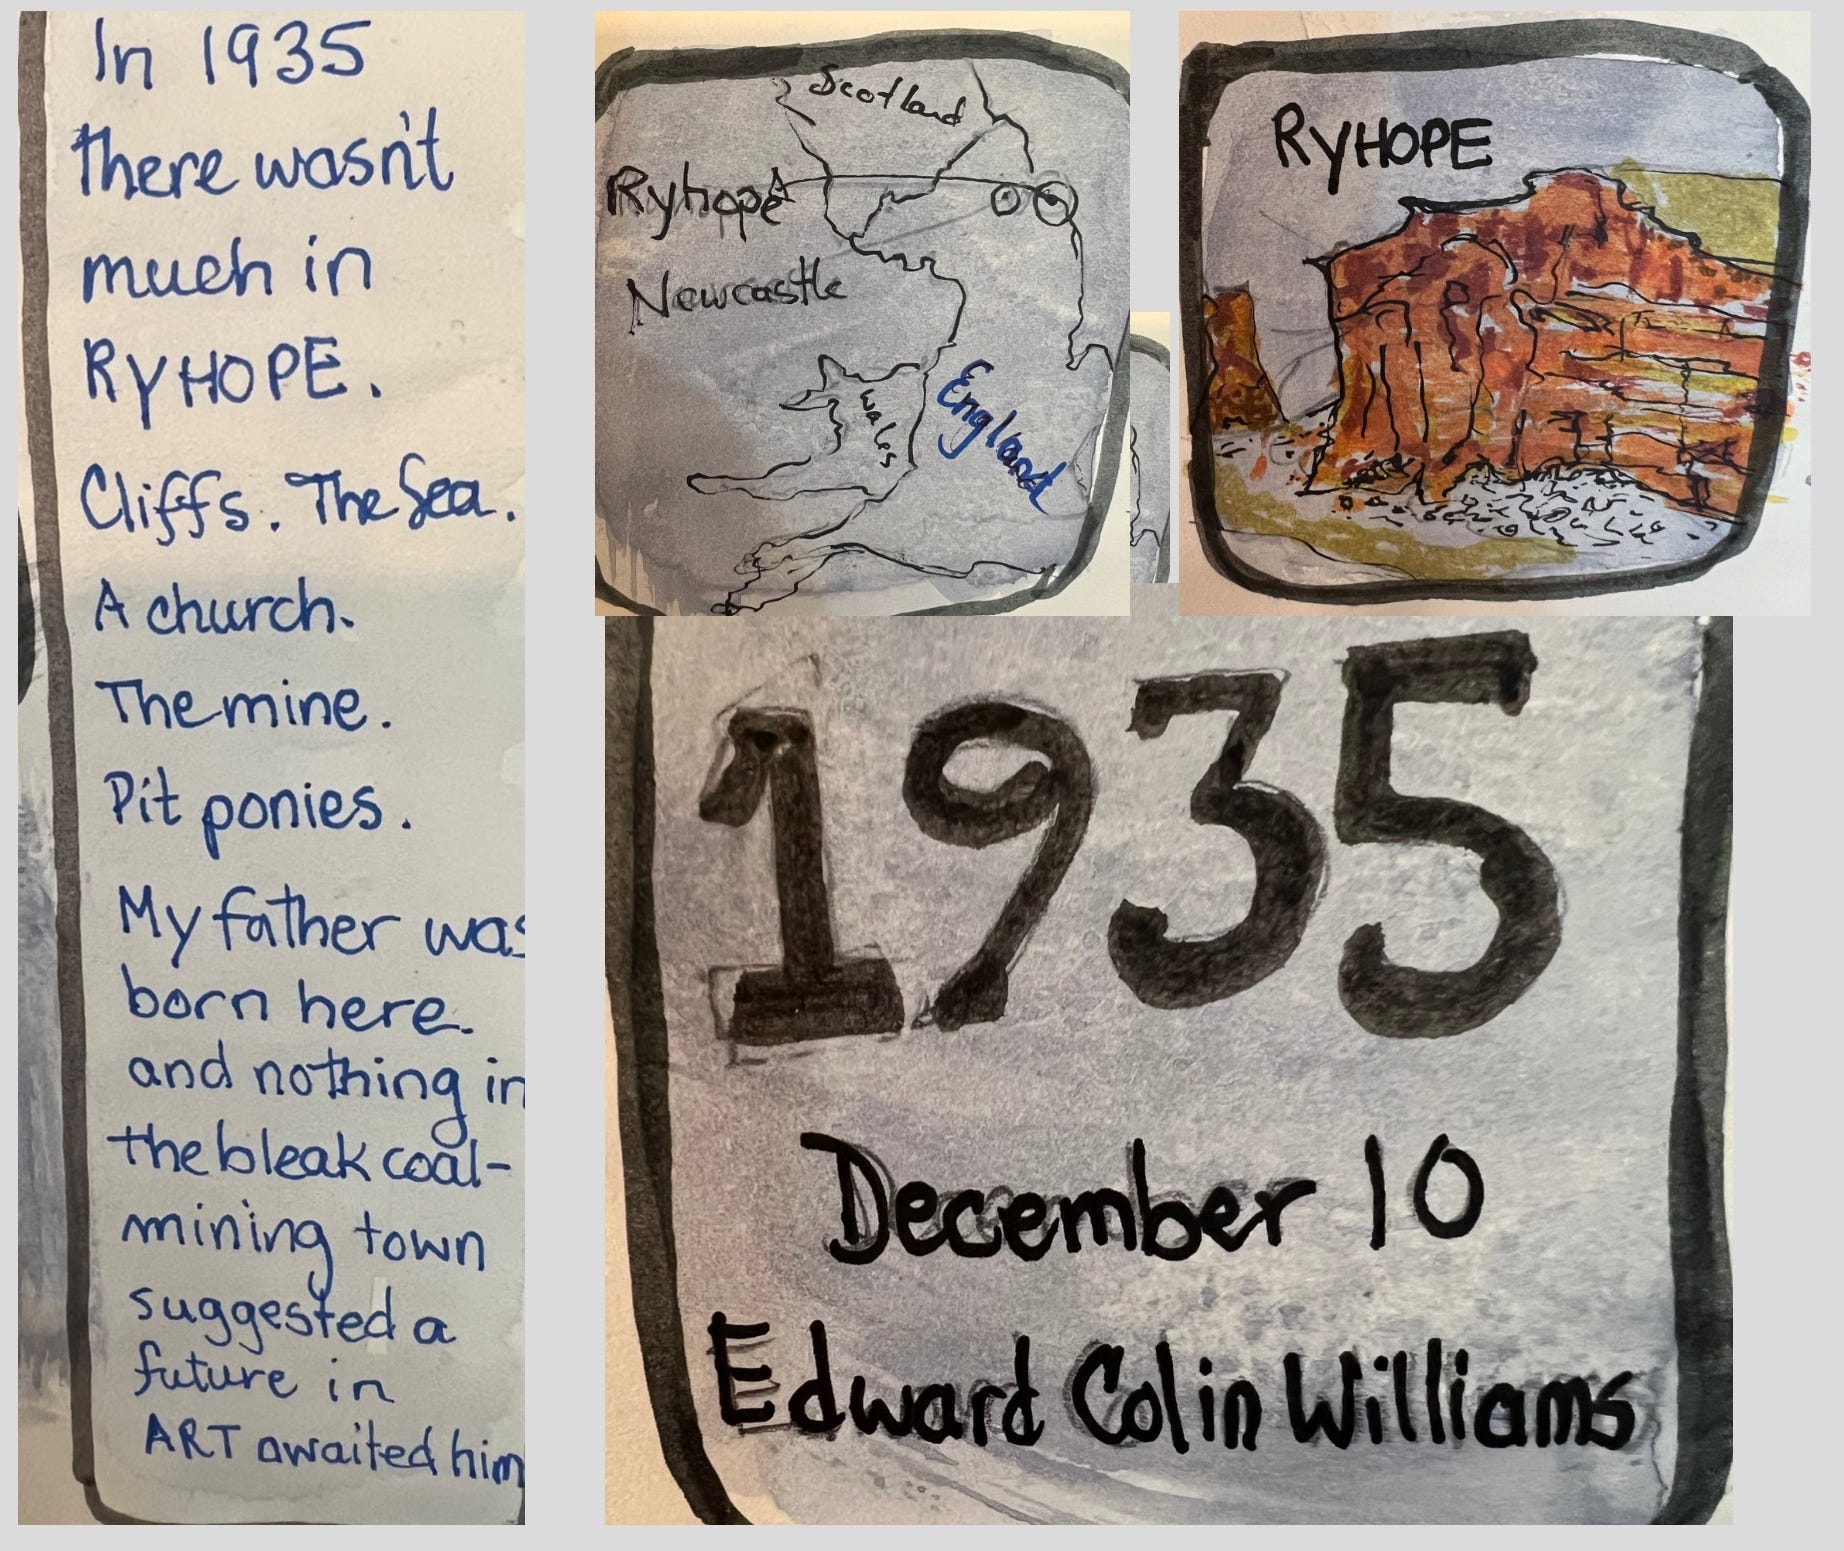 In 1935
there wasn't
much in
RyHOPE.
Cliffs. The Sea.
A church.
The mine.
Pit ponies.
My father was
born here.
and nothing in
the bleak coal-
mining town
suggested a
future in
ART awaited him
Scotland
Ryhope
Newcastle
Wales
England
RyHOPE
1935
December 10
Edward Colin Williams